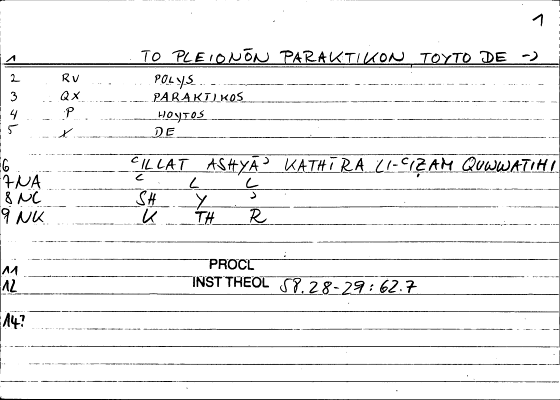 1
1 TO PLEIONŌN PARAKTIKON TOYTO DE →
2 RV POLYS
3 QX PARAKTIKOS
4 P HOYTOS
5 X DE
6 ʿILLAT ASHYĀʾ KATHĪRA LI-ʿIẒAM QUWWATIHI
7 NA ʿ L L
8 NC SH Y ʾ
9 NK K TH R
11 PROCL
12 INST THEOL 58.28-29: 62.7
14?